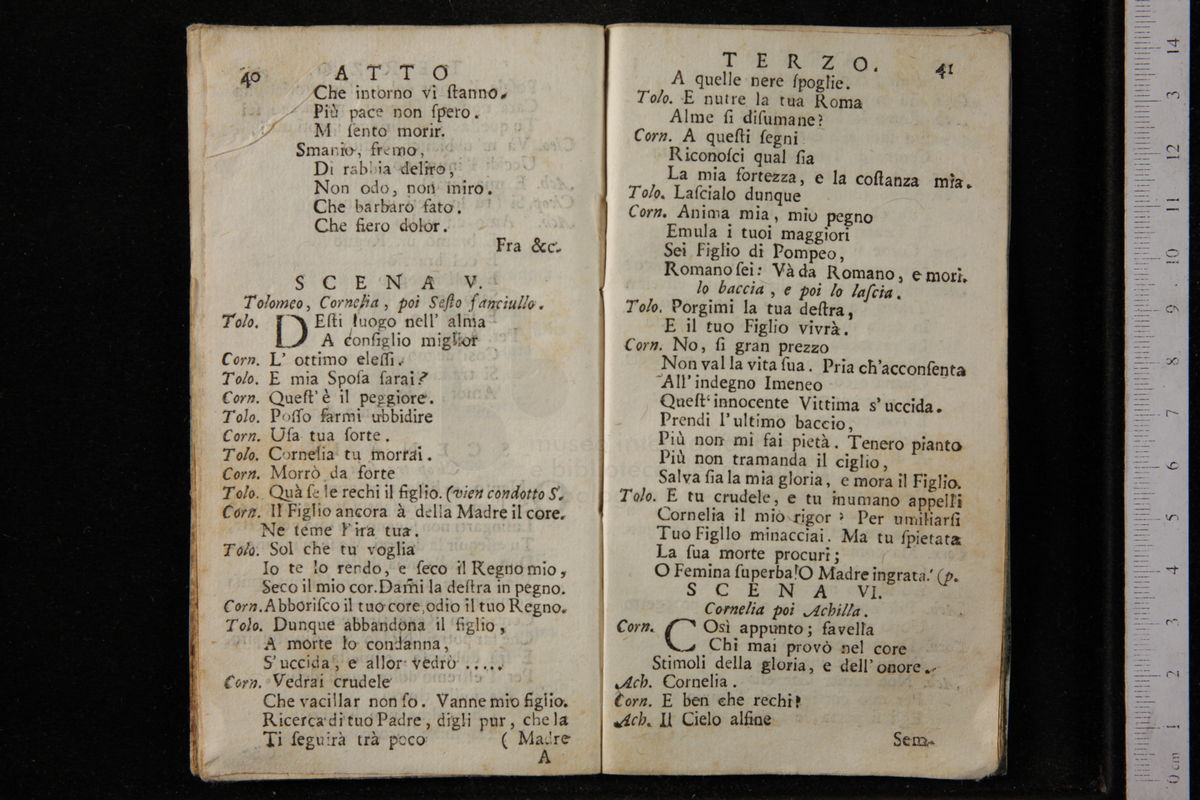 40 ATTO
Che intorno vi ſtanno.
Più pace non ſpero.
M ſento morir.
Smanio, fremo,
Di rabbia deliro,
Non odo, non miro.
Che barbaro fato.
Che fiero dolor.
Fra &c.
SCENA V.
Tolomeo, Cornelia, poi Seſto fanciullo.
Tolo. DEſti luogo nell' alma
A conſiglio miglior
Corn. L' ottimo eleſſi.
Tolo. E mia Spoſa ſarai?
Corn. Queſt' è il peggiore.
Tolo. Poſſo farmi ubbidire
Corn. Uſa tua ſorte.
Tolo. Cornelia tu morrai.
Corn. Morrò da forte
Tolo. Quà ſe le rechi il figlio. (vien condotto S.
Corn. Il Figlio ancora à della Madre il core.
Ne teme l'ira tua.
Tolo. Sol che tu voglia
Io te lo rendo, e ſeco il Regno mio,
Seco il mio cor. Dam̃i la deſtra in pegno.
Corn. Abboriſco il tuo core, odio il tuo Regno.
Tolo. Dunque abbandona il figlio,
A morte lo condanna,
S'uccida, e allor vedrò .....
Corn. Vedrai crudele
Che vacillar non ſo. Vanne mio figlio.
Ricerca di tuo Padre, digli pur, che la
Ti ſeguirà trà poco ( Madre
A
TERZO. 41
A quelle nere ſpoglie.
Tolo. E nutre la tua Roma
Alme ſi diſumane?
Corn. A queſti ſegni
Riconoſci qual ſia
La mia fortezza, e la coſtanza mia.
Tolo. Laſcialo dunque
Corn. Anima mia, mio pegno
Emula i tuoi maggiori
Sei Figlio di Pompeo,
Romano ſei: Và da Romano, e mori.
lo baccia, e poi lo laſcia.
Tolo. Porgimi la tua deſtra,
E il tuo Figlio vivrà.
Corn. No, ſi gran prezzo
Non val la vita ſua. Pria ch'acconſenta
All' indegno Imeneo
Queſt' innocente Vittima s'uccida.
Prendi l'ultimo baccio,
Più non mi fai pietà. Tenero pianto
Più non tramanda il ciglio,
Salva ſia la mia gloria, e mora il Figlio.
Tolo. E tu crudele, e tu inumano appelli
Cornelia il mio rigor? Per umiliarſi
Tuo Figllo minacciai. Ma tu ſpietata
La ſua morte procuri;
O Femina ſuperba! O Madre ingrata! (p.
SCENA VI.
Cornelia poi Achilla.
Corn. COsì appunto; favella
Chi mai provò nel core
Stimoli della gloria, e dell'onore.
Ach. Cornelia.
Corn. E ben che rechi?
Ach. Il Cielo alfine
Sem-